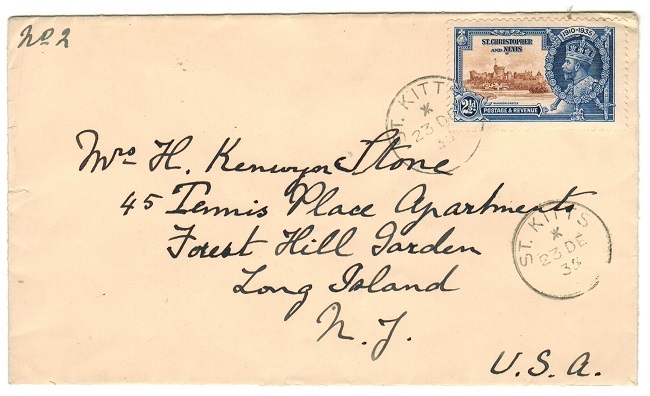 No 2
ST. CHRISTOPHER
AND NEVIS
1910-1935
2½d
POSTAGE & REVENUE
ST. KITTS
23 DE
35
Mrs H. Kenwyn Stone
45 Tennis Place Apartments
Forest Hill Garden
Long Island
N. J.
U.S.A.
ST. KITTS
23 DE
35